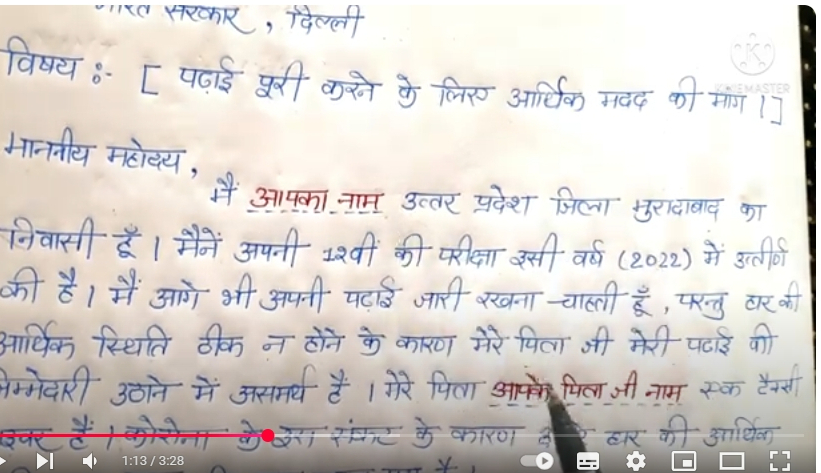 भारत सरकार, दिल्ली
विषय :- [ पढाई पूरी करने के लिए आर्थिक मदद की माग । ]
KINEMASTER
माननीय महोदय,
मैं आपका नाम उत्तर प्रदेश जिला मुरादाबाद का
निवासी हूँ । मैनें अपनी 12वीं की परीक्षा इसी वर्ष (2022) में उत्तीर्ण
की है । मैं आगे भी अपनी पढाई जारी रखना चाहती हूँ, परन्तु घर की
आर्थिक स्थिति ठीक न होने के कारण मेरे पिता जी मेरी पढाई की
जिम्मेदारी उठाने में असमर्थ हैं । मेरे पिता आपके पिता जी नाम एक टैक्सी
हैं । कोरोना के इस संकट के कारण घर की आर्थिक
1:13 / 3:28